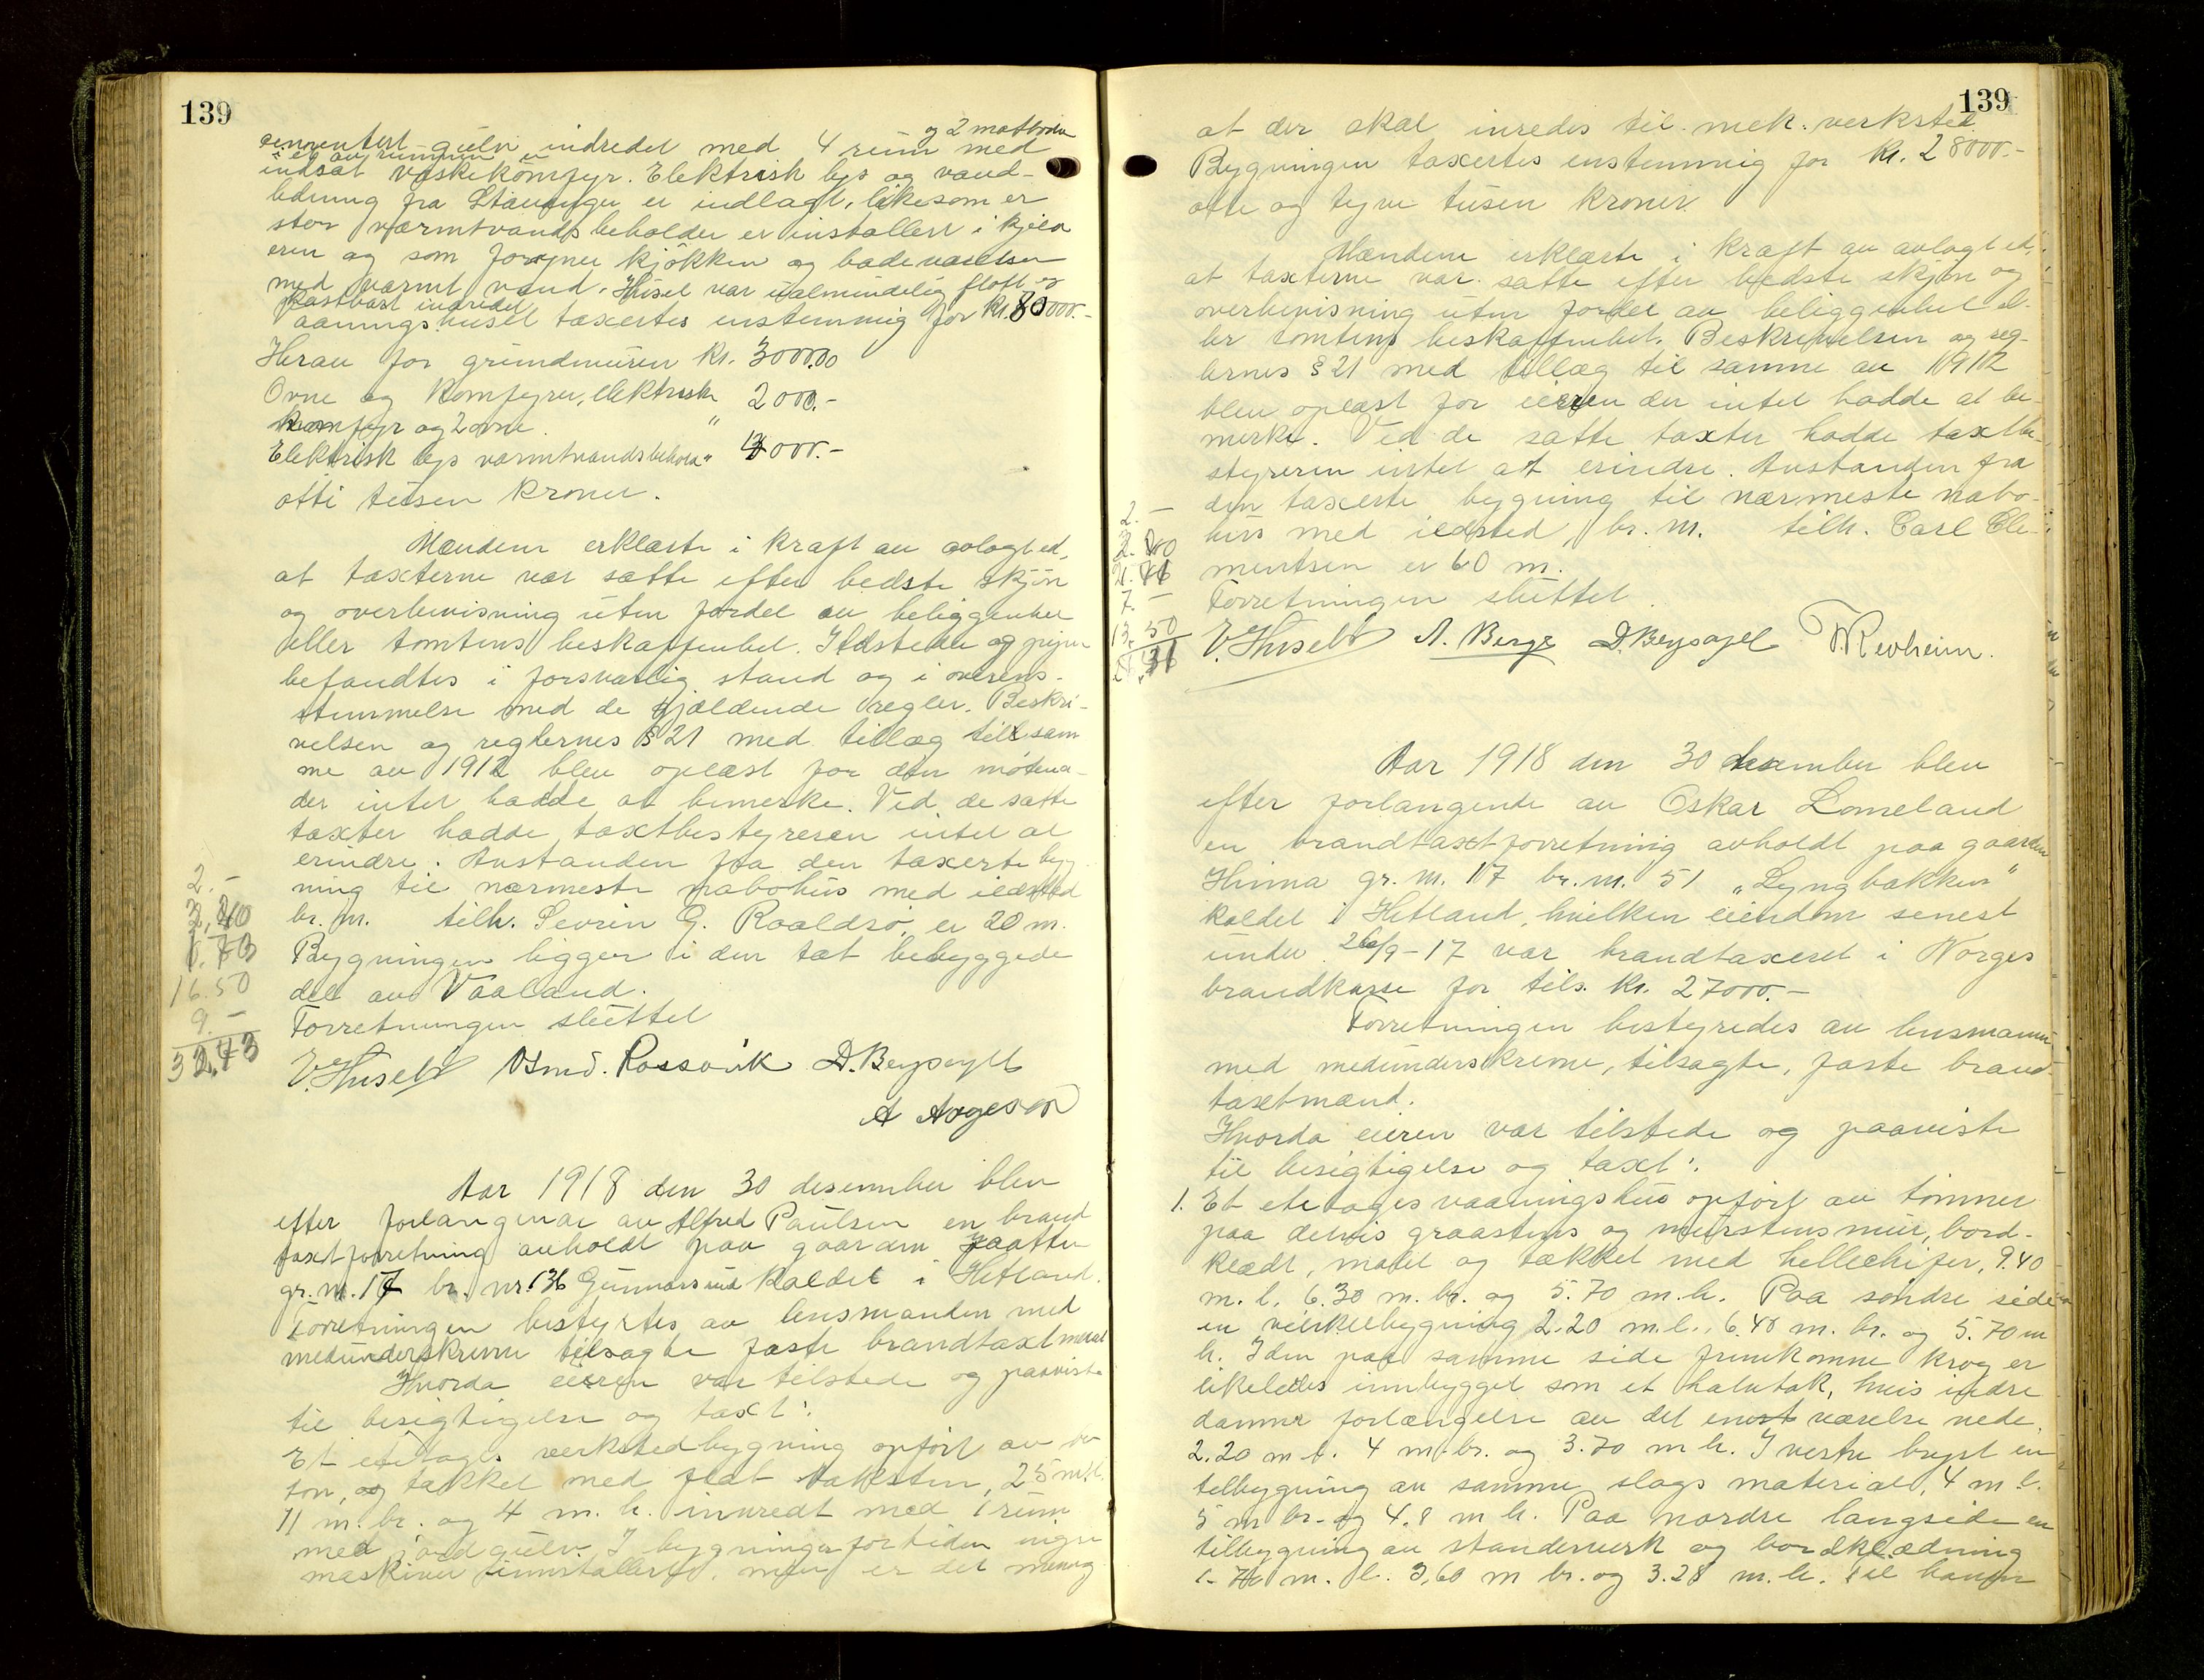 139
og 2 matboder
cementert gulv indredet med 4 rum med
i et av rummen er
indsat vaskekomfyr. Elektrisk lys og vand-
ledning fra Stavanger er indlagt, likesom er
stor varmtvandsbeholder er installert i kjeld
eren og som forsyner kjøkken og badeværelse
med varmt vand. Huset var ualmindelig flott og
kostbart indredet
aaningshuset taxertes enstemmig for kr. 80000.-
Herav for grundmuren kr. 3000.00
Ovne og komfyrer, elektrisk 2000.-
komfyr og 2 ovne "
Elektrisk lys varmtvandsbehold " 3000.-
otti tusen kroner.
Mændene erklærte i kraft av avlagt ed,
at taxterne var satte efter bedste skjøn
og overbevisning uten fordel av beliggenhet
eller tomtens beskaffenhet. Ildstedene og piper
befandtes i forsvarlig stand og i overens-
stemmelse med de gjældende regler. Beskri-
velsen og reglernes § 21 med tillæg til sam
me av 1912 blev oplæst for den møtena-
der intet hadde at bemerke. Ved de satte
taxter hadde taxtbestyreren intet at
erindre. Avstanden fra den taxerte byg
ning til nærmeste nabohus med ildsted
br. nr. tilh. Sevrin G. Roaldsø, er 20 m.
Bygningen ligger i den tæt bebyggede
del av Vaaland.
Forretningen sluttet
2.-
16.50
9.-
32.43
V. Huseb Osmd. Rossavik D. Bergsagel
A Aagesen
Aar 1918 den 30 desember blev
efter forlangende av Alfred Paulsen en brand
taxtforretning avholdt paa gaarden Jaatten
gr. nr. 17 br. nr. 136 Gunnarsund kaldet i Hetland.
Forretningen bestyrtes av lensmanden med
medunderskrevne tilsagte faste brandtaxtmænd
Hvorda eieren var tilstede og paaviste
til besigtigelse og taxt:
Et etetages verkstedbygning opført av be
ton, og tækket med flat taksten, 25 m. l.
11 m. br. og 4 m. h. innredt med 1 rum
med jordgulv. I bygningen for tiden ingen
maskiner innstallert, men er det mening
139
at der skal inredes til mek. verksted.
Bygningen taxertes enstemmig for kr. 28000.-
otte og tyve tusen kroner.
Mændene erklærte i kraft av avlagt ed,
at taxterne var satte efter bedste skjøn og
overbevisning uten fordel av beliggenhet el-
ler tomtens beskaffenhet. Beskrivelsen og reg-
lernes § 21 med tillæg til samme av 1912
blev oplæst for eieren der intet hadde at be-
merke. Ved de satte taxter hadde taxtbe-
styreren intet at erindre. Avstanden fra
den taxerte bygning til nærmeste nabo-
hus med ildsted, br. nr. tilh. Carl Cle-
mentsen er 60 m.
Forretningen sluttet.
2.-
7.-
13.50
V. Huseb A. Berge D. Bergsagel T. Revheim.
Aar 1918 den 30 desember blev
efter forlangende av Oskar Lomeland
en brandtaxtforretning avholdt paa gaarden
Hinna gr. nr. 17 br. nr. 51 „Lyngbakken"
kaldet i Hetland, hvilken eiendom senest
under 26/9-17 var brandtaxeret i Norges
brandkasse for tils. kr. 27000.-
Forretningen bestyredes av lensmannen
med medunderskrevne, tilsagte, faste brand-
taxtmænd.
Hvorda eieren var tilstede og paaviste
til besigtigelse og taxt:
1. Et etetages vaaningshus opført av tømmer
paa delvis graastens og murstensmur, bord-
klædt, malet og tækket med helleskifer, 9.40
m. l. 6.30 m. br. og 5.70 m. h. Paa søndre side
en vinkelbygning 2.20 m. l., 6.48 m. br. og 5.70 m
h. I den paa samme side fremkomne krog er
likeledes innbygget som et halvtak, hvis indre
danner forlængelse av det enest værelse nede
2.20 m. l. 4 m. br. og 3.70 m h. I vestre bryst en
tilbygning av samme slags material, 4 m l.
5 m br. og 4.8 m h. Paa nordre langside en
tilbygning av standerverk og bordklædning
m. l. 3,60 m br. og 3.28 m. h. til haven